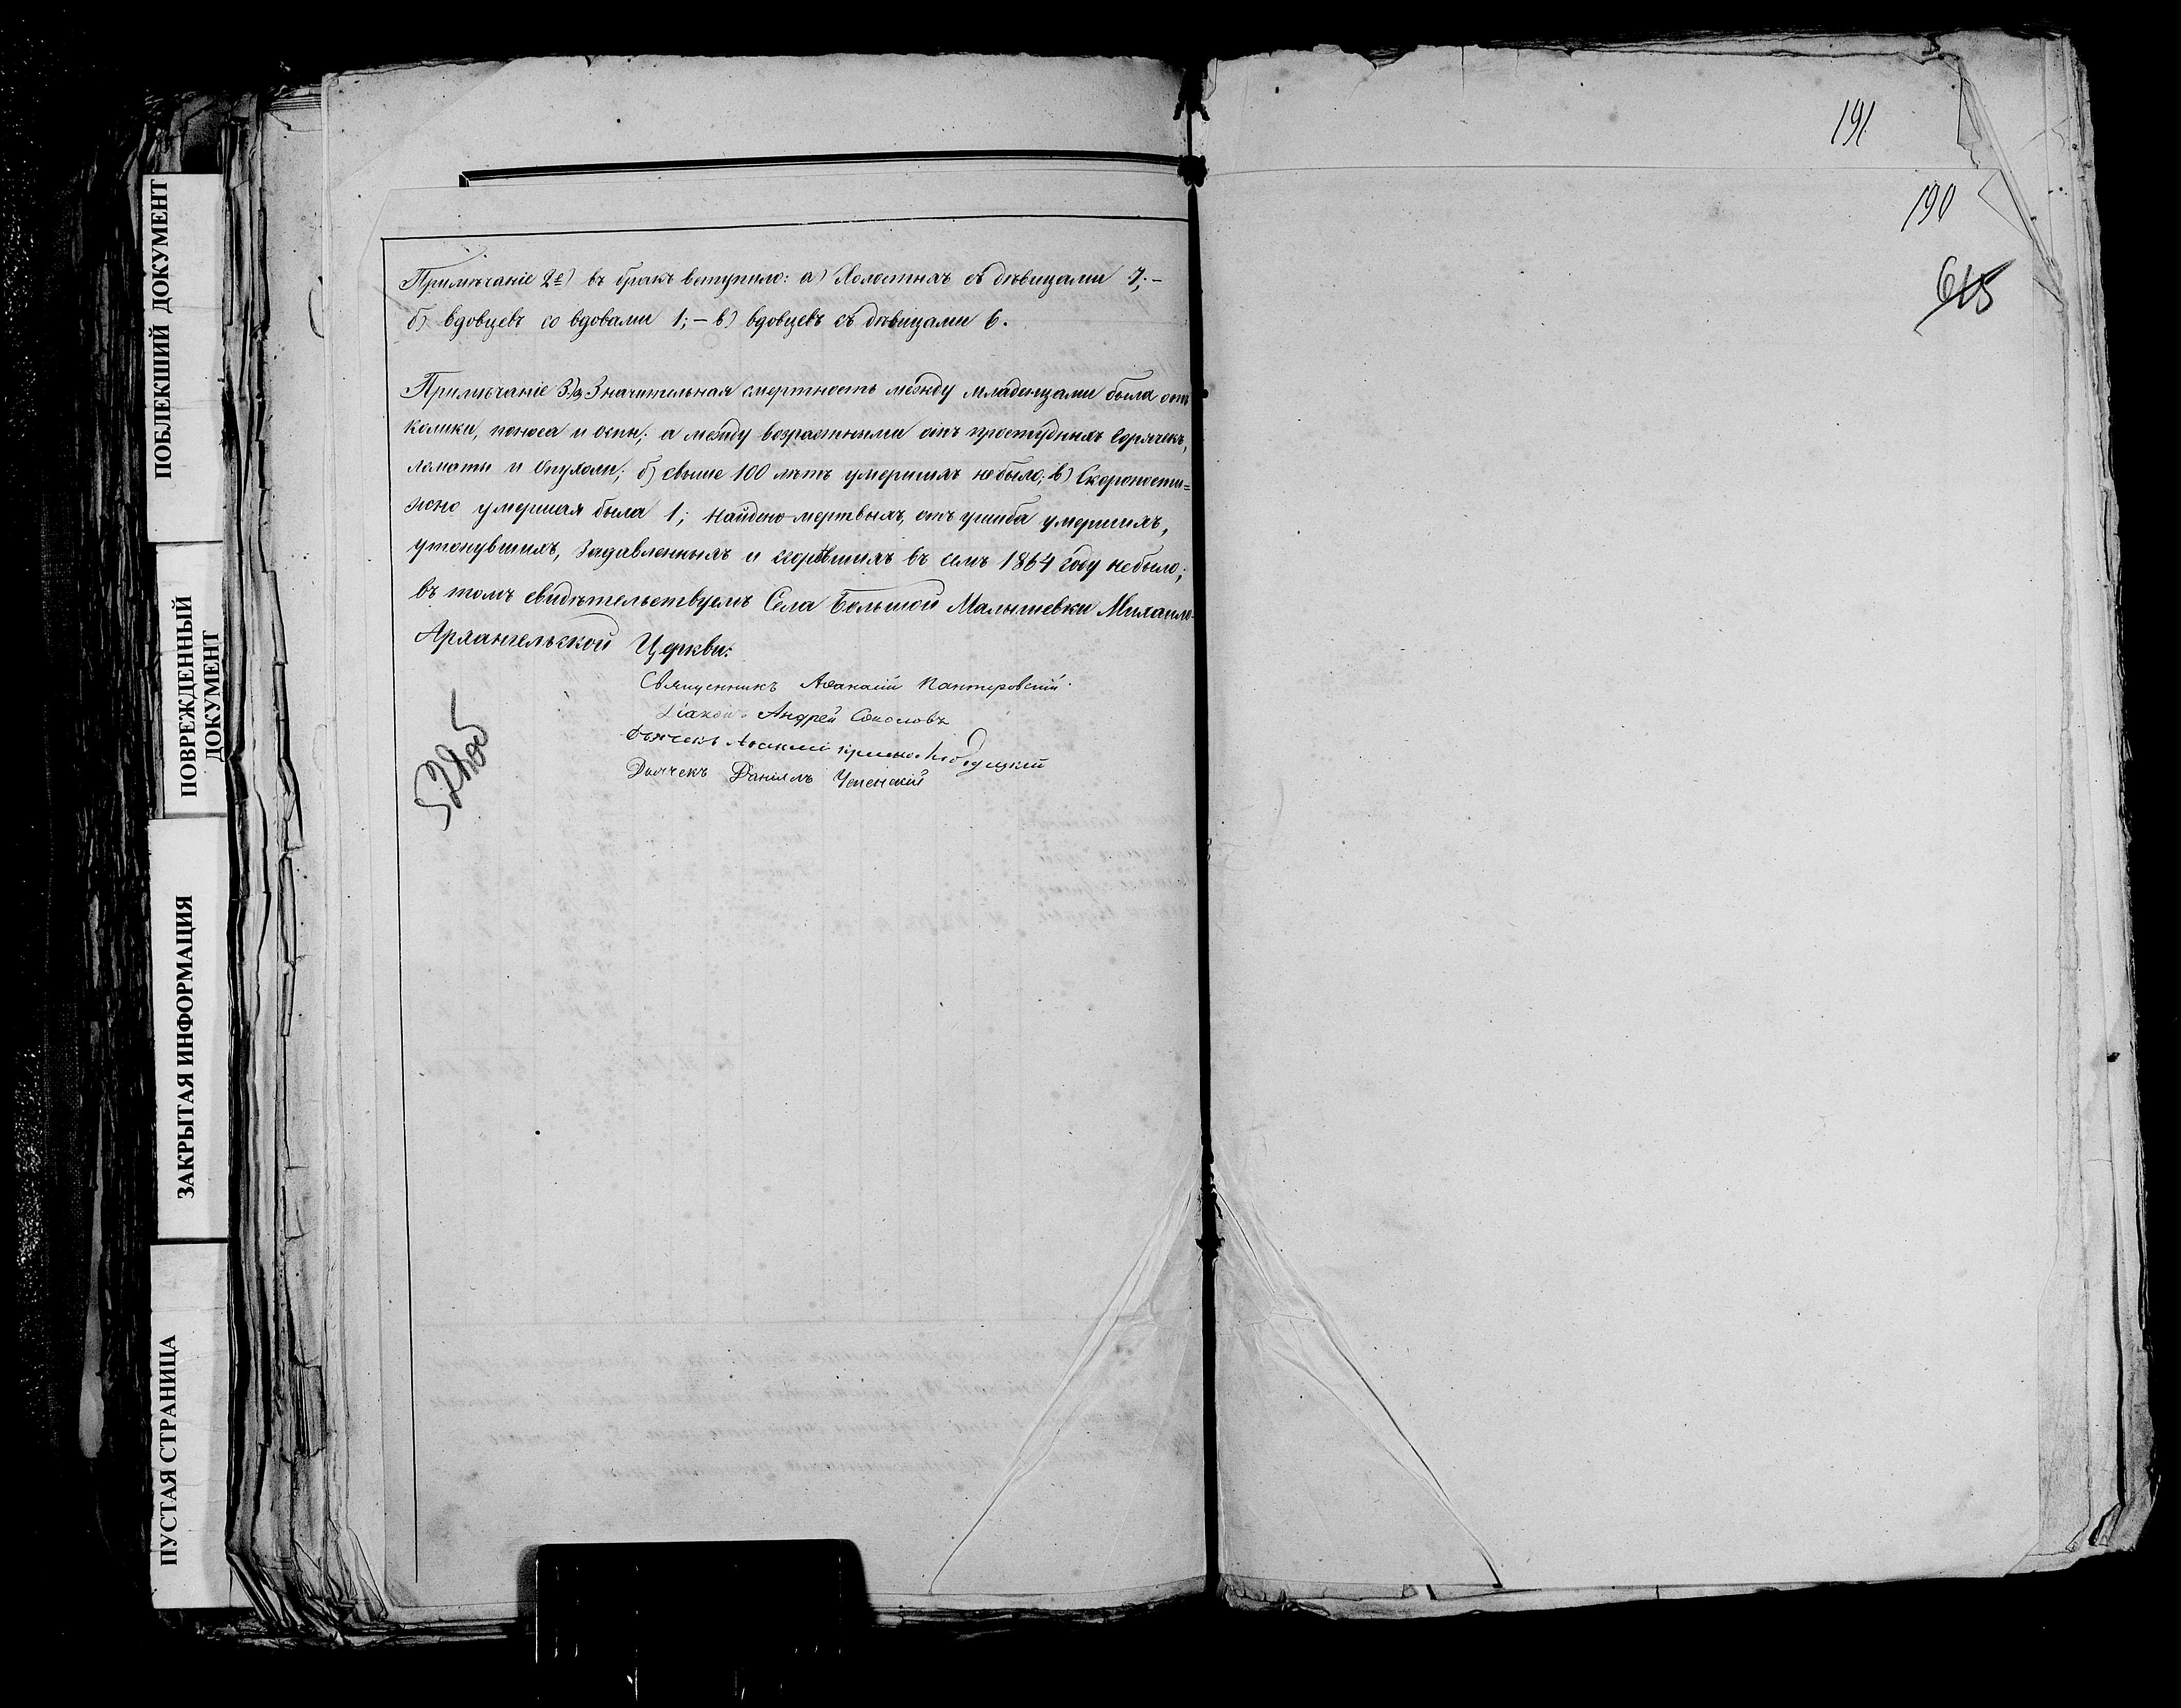 Примѣчаніе 2е) въ бракъ вступило: а) Холостыхъ съ дѣвицами 7; –
б) вдовцевъ со вдовами 1; – в) вдовцевъ съ дѣвицами 6.
Примѣчаніе 3) а) Значительная смертность между младенцами была отъ
колики, поноса и оспы; а между возрастными отъ простудныхъ Горячекъ,
ломоты и Опухоли; б) свыше 100 лѣтъ умершихъ небыло; в) Скоропости=
жно умершая была 1; найдено мертвыхъ, отъ ушиба умершихъ,
утонувшихъ, задавленныхъ и сгорѣвшихъ въ семъ 1864 году небыло;
въ томъ свидѣтельствуемъ Села Большой Малышевки Михаило-
Архангельской Церкви:
Священникъ Аѳанасій Пантеровскій
Діаконъ Андрей Соколовъ
Дьячекъ
Дьячекъ Даніилъ Успенскій
191
190
615
ПОБЛЕКШИЙ ДОКУМЕНТ
ПОВРЕЖДЕННЫЙ
ДОКУМЕНТ
ЗАКРЫТАЯ ИНФОРМАЦИЯ
ПУСТАЯ СТРАНИЦА